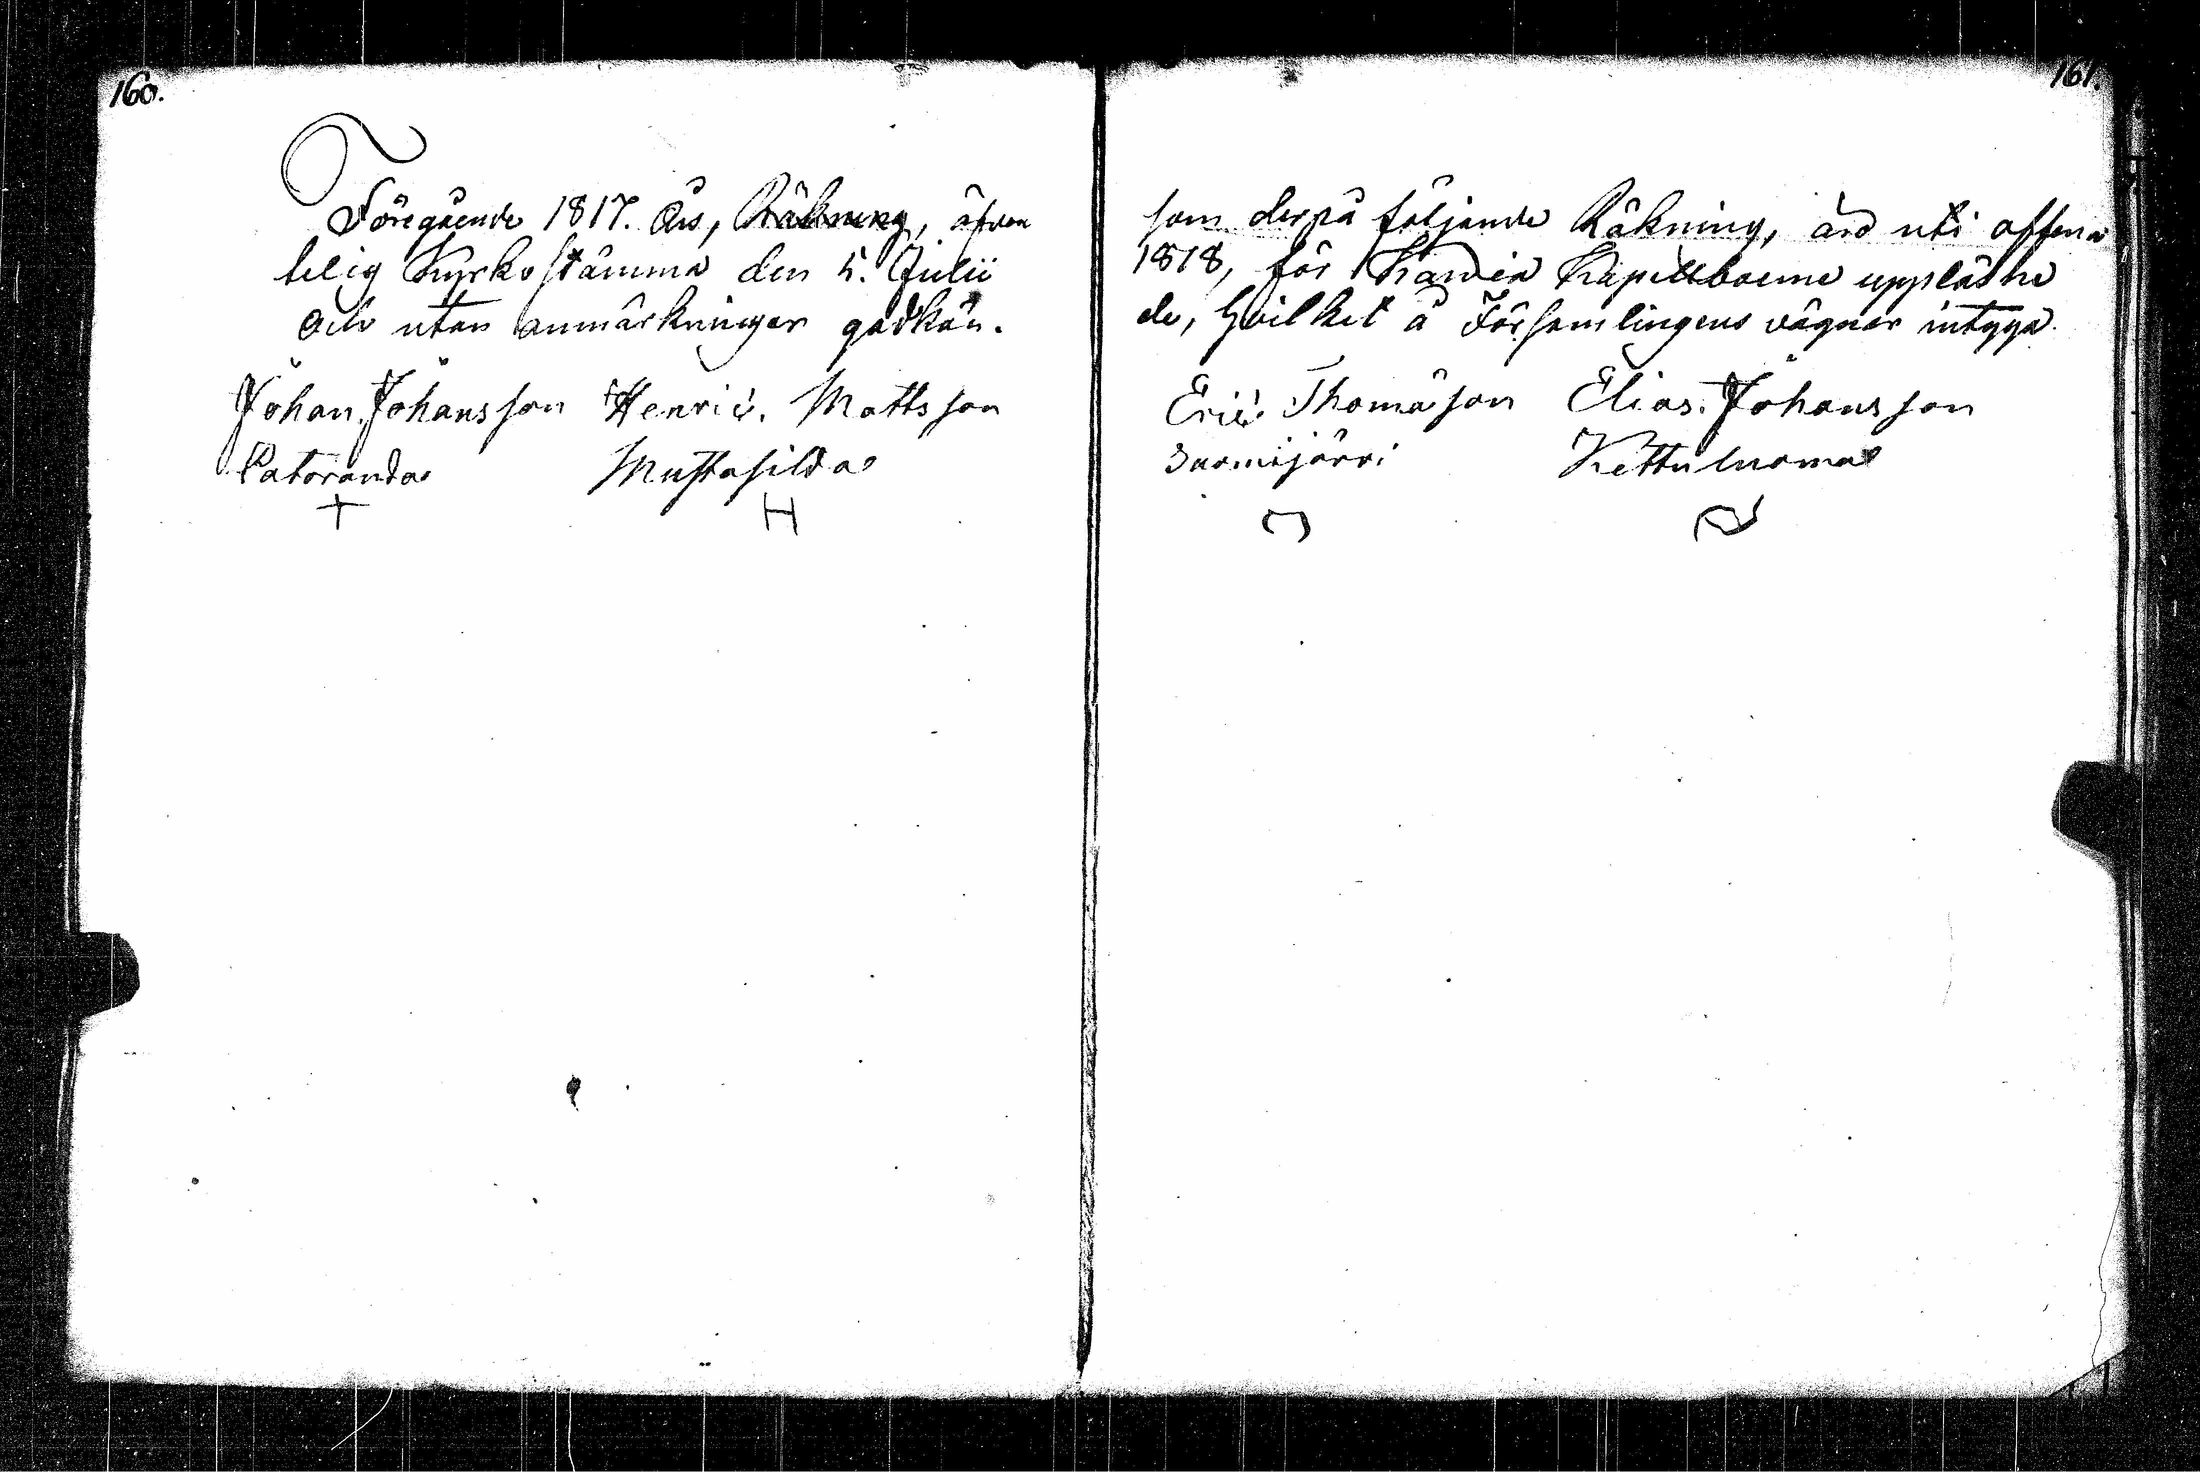 160.
Föregående 1817. Års, Räkning, äfven
telig Kyrkostämma den 5. Julii
och utan anmärkningar godkän-
Johan Johansson Henric. Mattsson
Patoranda Mustasilda
+ H
161.
som derpå följande Räkning, äro uti offen
1818, för Kapellboerne uppläsne
de, hvilket å Församlingens vägnar intyga.
Eric Thomason Elias. Johansson
Surmijärvi Kettuluoma